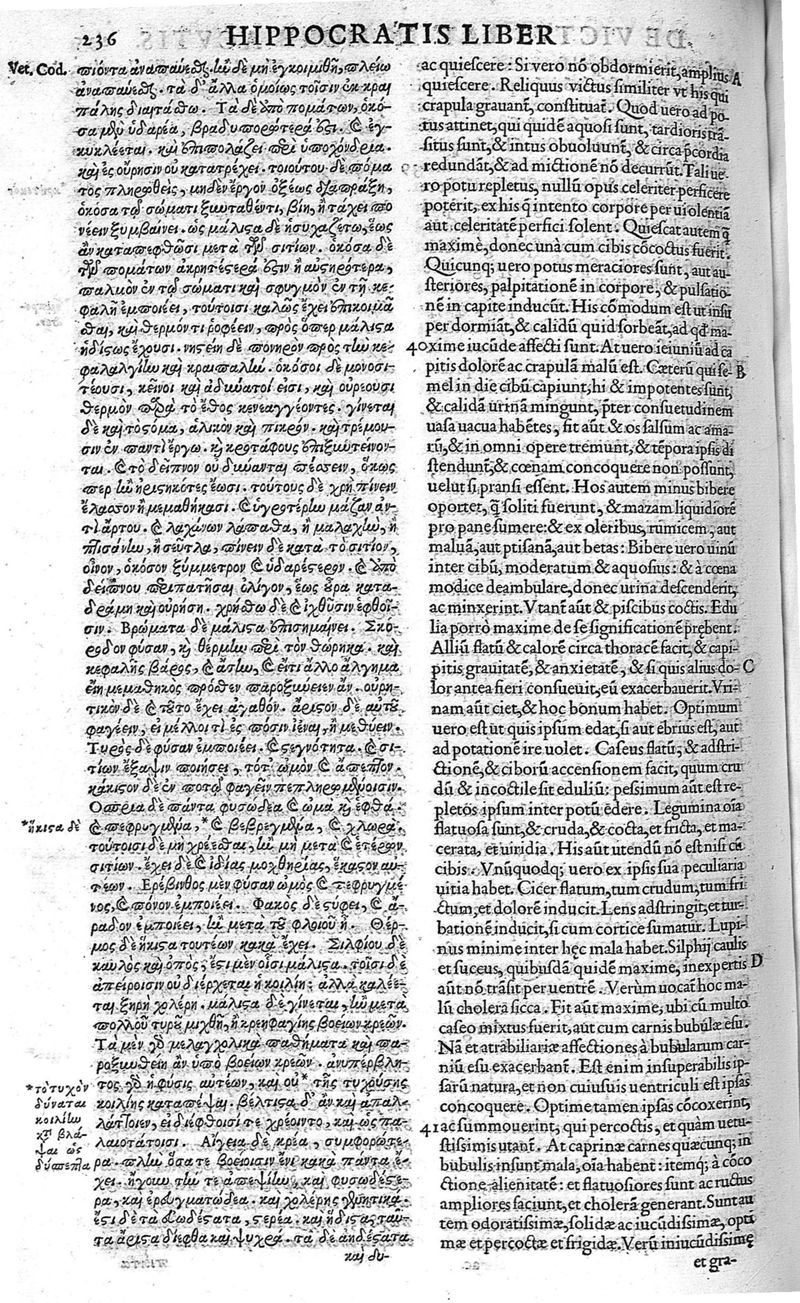 236 HIPPOCRATIS LIBER
Vet. Cod.
πιόντα ἀναπαύεσθαι. ἢν δὲ μὴ ἐγκοιμηθῇ, πλείω
ἀναπαύεσθαι. τὰ δ' ἄλλα ὁμοίως τοῖσιν ἐκ κραι
πάλης διαιτάσθω. Τὰ δὲ ὑπὸ πομάτων, ὁκό-
σα μὲν ὑδαρέα, βραδυπορώτερά ἐστι. καὶ ἐγ-
κυκλέεται. καὶ ἐπιπολάζει περὶ ὑποχόνδρια.
καὶ ἐς οὔρησιν οὐ κατατρέχει. τοιούτου δὲ πόμα
τος πληρωθεὶς, μηδὲν ἔργον ὀξέως διαπράξῃ,
ὁκόσα τῷ σώματι ξυνταθέντι, βίῃ, ἢ τάχει πο
νέειν ξυμβαίνει. ὡς μάλιστα δὲ ἡσυχαζέτω, ἕως
ἂν καταπεφθῶσι μετὰ τῶν σιτίων. ὁκόσα δὲ
τῶν πομάτων ἀκρητέστερά ἐστιν ἢ αὐστηρότερα,
παλμὸν ἐν τῷ σώματι καὶ σφυγμὸν ἐν τῇ κε-
φαλῇ ἐμποιέει, τούτοισι καλῶς ἔχει ἐπικοιμᾶ
σθαι, καὶ θερμόν τι ῥοφέειν, πρὸς ὅπερ μάλιστα
ἡδίστως ἔχουσι. νηστείη δὲ πονηρὸν πρὸς τὴν κε-
φαλαλγίην καὶ κραιπάλην. ὁκόσοι δὲ μονοσι-
τέουσι, κεῖνοι καὶ ἀδύνατοί εἰσι, καὶ οὐρέουσι
θερμὸν παρὰ τὸ ἔθος κενεαγγέοντες. γίνεται
δὲ καὶ τὸ στόμα, ἁλικὸν καὶ πικρόν. καὶ τρέμου-
σιν ἐν παντὶ ἔργῳ. καὶ κροτάφους ἐπιξυντείνον-
ται. καὶ τὸ δεῖπνον οὐ δύνανται πέσσειν, ὅκως
περ ἢν ἠριστηκότες ἔωσι. τούτους δὲ χρὴ πίνειν
ἔλασσον ἢ μεμαθήκασι. καὶ ὑγροτέρην μᾶζαν ἀν-
τὶ ἄρτου. καὶ λαχάνων λάπαθα, ἢ μαλάχην, ἢ
πτισάνην, ἢ σεῦτλα, πίνειν δὲ κατὰ τὸ σιτίον,
οἶνον, ὁκόσον ξύμμετρον καὶ ὑδαρέστερον. καὶ ἀπὸ
δείπνου περιπατῆσαι ὀλίγον, ἕως οὖρα κατα-
δράμῃ καὶ οὐρήσῃ. χρήσθω δὲ καὶ ἰχθύσιν ἑφθοῖ-
σιν. Βρώματα δὲ μάλιστα ἐπισημαίνει. Σκό-
ροδον φύσαν, καὶ θέρμην περὶ τὸν θώρηκα. καὶ
κεφαλῆς βάρος, καὶ ἄσην, καὶ εἴ τι ἄλλο ἄλγημα
εἴη μεμαθηκὸς πρόσθεν παροξύνειεν ἄν. οὐρη-
τικὸν δὲ καὶ τοῦτο ἔχει ἀγαθόν. ἄριστον δὲ αὐτοῦ
φαγέειν, εἰ μέλλοι τις ἐς πόσιν ἰέναι, ἢ μεθύειν.
Τυρὸς δὲ φύσαν ἐμποιέει. καὶ στεγνότητα. καὶ σι-
τίων ἔξαψιν ποιήσει, τό τ' ὠμὸν καὶ ἄπεπτον.
κάκιστον δὲ ἐν ποτῷ φαγεῖν πεπληρωμένοισι.
Ὄσπρια δὲ πάντα φυσώδεα καὶ ὠμὰ καὶ ἑφθὰ.
*ἥκιστα δὲ
καὶ πεφρυγμένα, * καὶ βεβρεγμένα, καὶ χλωρά.
τούτοισι δὲ μὴ χρέεσθαι, ἢν μὴ μετὰ ἑτέρων
σιτίων. ἔχει δὲ καὶ ἰδίας μοχθηρίας, ἕκαστον αὐ-
τέων. Ἐρέβινθος μὲν φύσαν ὠμὸς καὶ πεφρυγμέ
νος, καὶ πόνον ἐμποιέει. Φακὸς δὲ στύφει, καὶ ἄ-
ραδον ἐμποιέει, ἢν μετὰ τοῦ φλοιοῦ ᾖ. Θέρ-
μος δὲ ἥκιστα τουτέων κακὰ ἔχει. Σιλφίου δὲ
καυλὸς καὶ ὀπὸς, ἔστι μὲν οἷσι μάλιστα. τοῖσι δὲ
ἀπείροισιν οὐ διέρχεται ἡ κοιλίη· ἀλλὰ καλέε-
ται ξηρὴ χολέρη. μάλιστα δὲ γίνεται, ἢν μετὰ
πολλοῦ τυροῦ μιχθῇ, ἢ κρεηφαγίης βοείων κρεῶν.
Τὰ μὲν γὰρ μελαγχολικὰ παθήματα καὶ πα-
ροξυνθείη ἂν ὑπὸ βοείων κρεῶν. ἀνυπέρβλη-
*τὸ τυχὸν
δύναται
κοιλίην
καταβλά-
ψαι ὡς
δύσπεπτα
τος γὰρ ἡ φύσις αὐτέων, καὶ οὐ * τῆς τυχούσης
κοιλίης καταπέψαι. βέλτιστα δ' ἂν καὶ ἀπαλ-
λάττοιεν, εἰ διέφθοισί τε χρέοιντο, καὶ ὡς πα-
λαιοτάτοισι. Αἴγεια δὲ κρέα, συμφορώτε-
ρα. πλὴν ὅσα τε βοείοισιν ἔνι κακὰ πάντα ἔ-
χει. ἤγουν τήν τε ἀπεψίην, καὶ φυσωδέστε-
ρα, καὶ ἐρευγματώδεα. καὶ χολέρης γεννητικά.
ἔστι δὲ τὰ εὐωδέστατα, στερεά. καὶ ἥδιστα ταῦ-
τα ἄριστα δίεφθα καὶ ψυχρά. τὰ δὲ ἀηδέστατα
καὶ δυ-
ac quiescere: Si vero nõ obdormierit, amplius A
quiescere. Reliquus victus similiter vt his qui
crapula grauant, constituat. Quod uero ad po
tus attinet, qui quidẽ aquosi sunt, tardioris trã
situs sunt, & intus obuoluunt, & circa p̃cordia
redundãt, & ad mictionẽ nõ decurrũt. Tali ue-
ro potu repletus, nullũ opus celeriter perficere
poterit, ex his q̃ intento corpore per uiolentiã
aut celeritatẽ perfici solent. Quiescat autem q̃
maximè, donec unà cum cibis cõcoctus fuerit.
Quicunq; uero potus meraciores sunt, aut au-
steriores, palpitationẽ in corpore, & pulsatio-
nẽ in capite inducũt. His cõmodum est ut insu
per dormiãt, & calidũ quid sorbeãt, ad qđ ma-
40 xime iucũde affecti sunt. At uero ieiuniũ ad ca
pitis dolorẽ ac crapulã malũ est. Cæterũ qui se- B
mel in die cibũ capiunt, hi & impotentes sunt,
& calidã urinã mingunt, p̃ter consuetudinem
uasa uacua habẽtes, fit aũt & os salsum ac ama-
rũ, & in omni opere tremunt, & tẽpora ipsis di
stendunt, & cœnam concoquere non possunt,
uelut si pransi essent. Hos autem minus bibere
oportet, q̃ soliti fuerunt, & mazam liquidiorẽ
pro pane sumere: & ex oleribus, rumicem, aut
maluã, aut ptisanã, aut betas: Bibere uero uinũ
inter cibũ, moderatum & aquosius: & à cœna
modice deambulare, donec urina descenderit,
ac minxerint. Vtant aũt & piscibus coctis. Edu
lia porrò maxime de se significationẽ prębent.
Alliũ flatũ & calorẽ circa thoracẽ facit, & capi-
pitis grauitatẽ, & anxietatẽ, & si quis alius do- C
lor antea fieri consueuit, eũ exacerbauerit. Vri-
nam aũt ciet, & hoc bonum habet. Optimum
uero est ut quis ipsum edat, si aut ebrius est, aut
ad potationẽ ire uolet. Caseus flatũ, & adstri-
ctionẽ, & ciborũ accensionem facit, quum cru
dũ & incoctile sit eduliũ: pessimum aũt est re-
pletos ipsum inter potũ edere. Legumina oĩa
flatuosa sunt, & cruda, & cocta, et fricta, et ma-
cerata, et uiridia. His aũt utendũ nõ est nisi cũ
cibis. Vnũquodq; uero ex ipsis sua peculiaria
uitia habet. Cicer flatum, tum crudum, tum fri
ctum, et dolorẽ inducit. Lens adstringit, et tur-
bationẽ inducit, si cum cortice sumatur. Lupi-
nus minime inter hęc mala habet. Silphij caulis
et succus, quibusdã quidẽ maxime, inexpertis D
aũt nõ trãsit per uentrẽ. Verùm uocat hoc ma-
lũ cholera sicca. Fit aũt maxime, ubi cũ multo
caseo mixtus fuerit, aut cum carnis bubulæ esu.
Nã et atrabiliariæ affectiones à bubularum car-
niũ esu exacerbant. Est enim insuperabilis ip-
sarũ natura, et non cuiusuis uentriculi est ipsas
concoquere. Optime tamen ipsas cõcoxerint,
41 ac summouerint, qui percoctis, et quàm uetu-
stissimis utant. At caprinæ carnes quæcunq; in
bubulis insunt mala, oĩa habent: itemq; à cõco
ctione alienitatẽ: et flatuosiores sunt ac ructus
ampliores faciunt, et cholerã generant. Sunt au
tem odoratissimæ, solidæ ac iucũdissimæ, opti
mæ et percoctæ et frigidæ. Verũ iniucũdissimę
et gra-